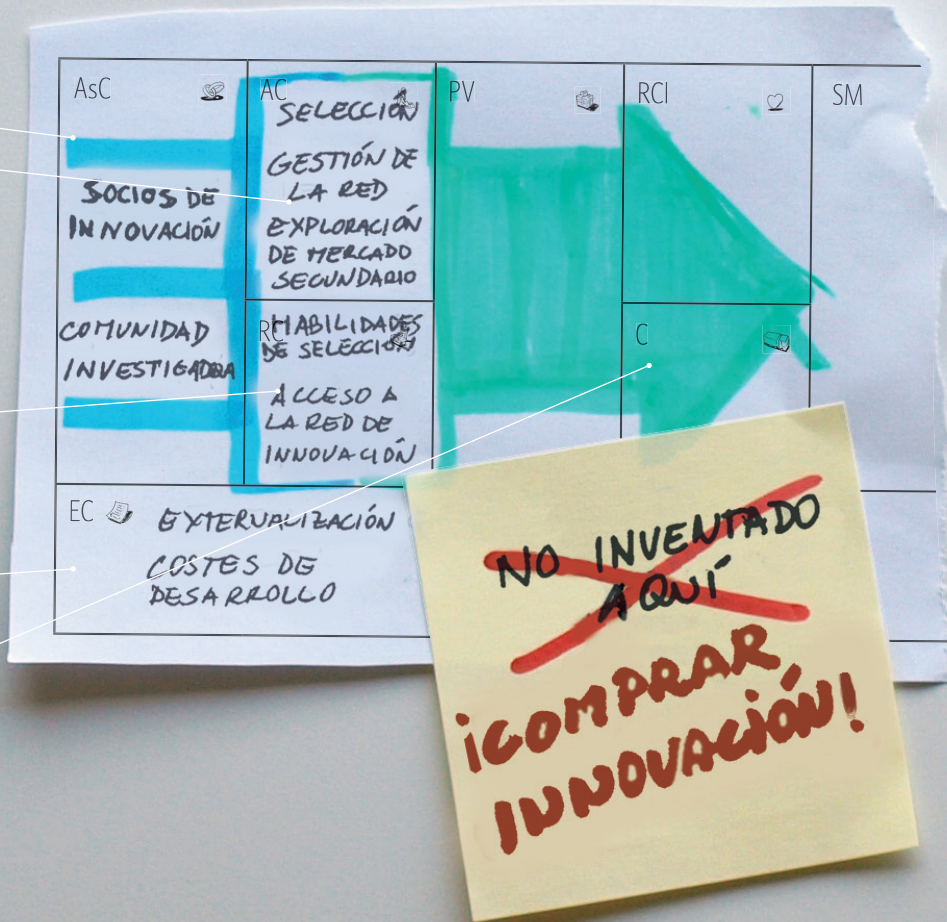 AsC
SOCIOS DE
INNOVACIÓN
COMUNIDAD
INVESTIGADORA
AC
SELECCIÓN
GESTIÓN DE
LA RED
EXPLORACIÓN
DE MERCADO
SECUNDARIO
RC
HABILIDADES
DE SELECCIÓN
ACCESO A
LA RED DE
INNOVACIÓN
PV
RCl
C
SM
EC
EXTERNALIZACIÓN
COSTES DE
DESARROLLO
NO INVENTADO
AQUÍ
¡COMPRAR
INNOVACIÓN!